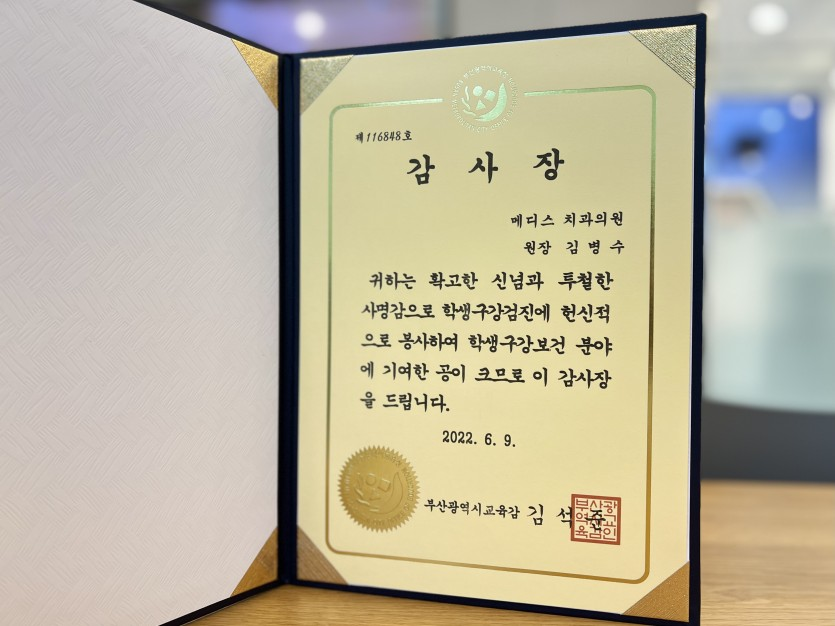 제116848호
감 사 장
메디스 치과의원
원장 김병수
귀하는 확고한 신념과 투철한
사명감으로 학생구강검진에 헌신적
으로 봉사하여 학생구강보건 분야
에 기여한 공이 크므로 이 감사장
을 드립니다.
2022. 6. 9.
부산광역시교육감 김 석 준